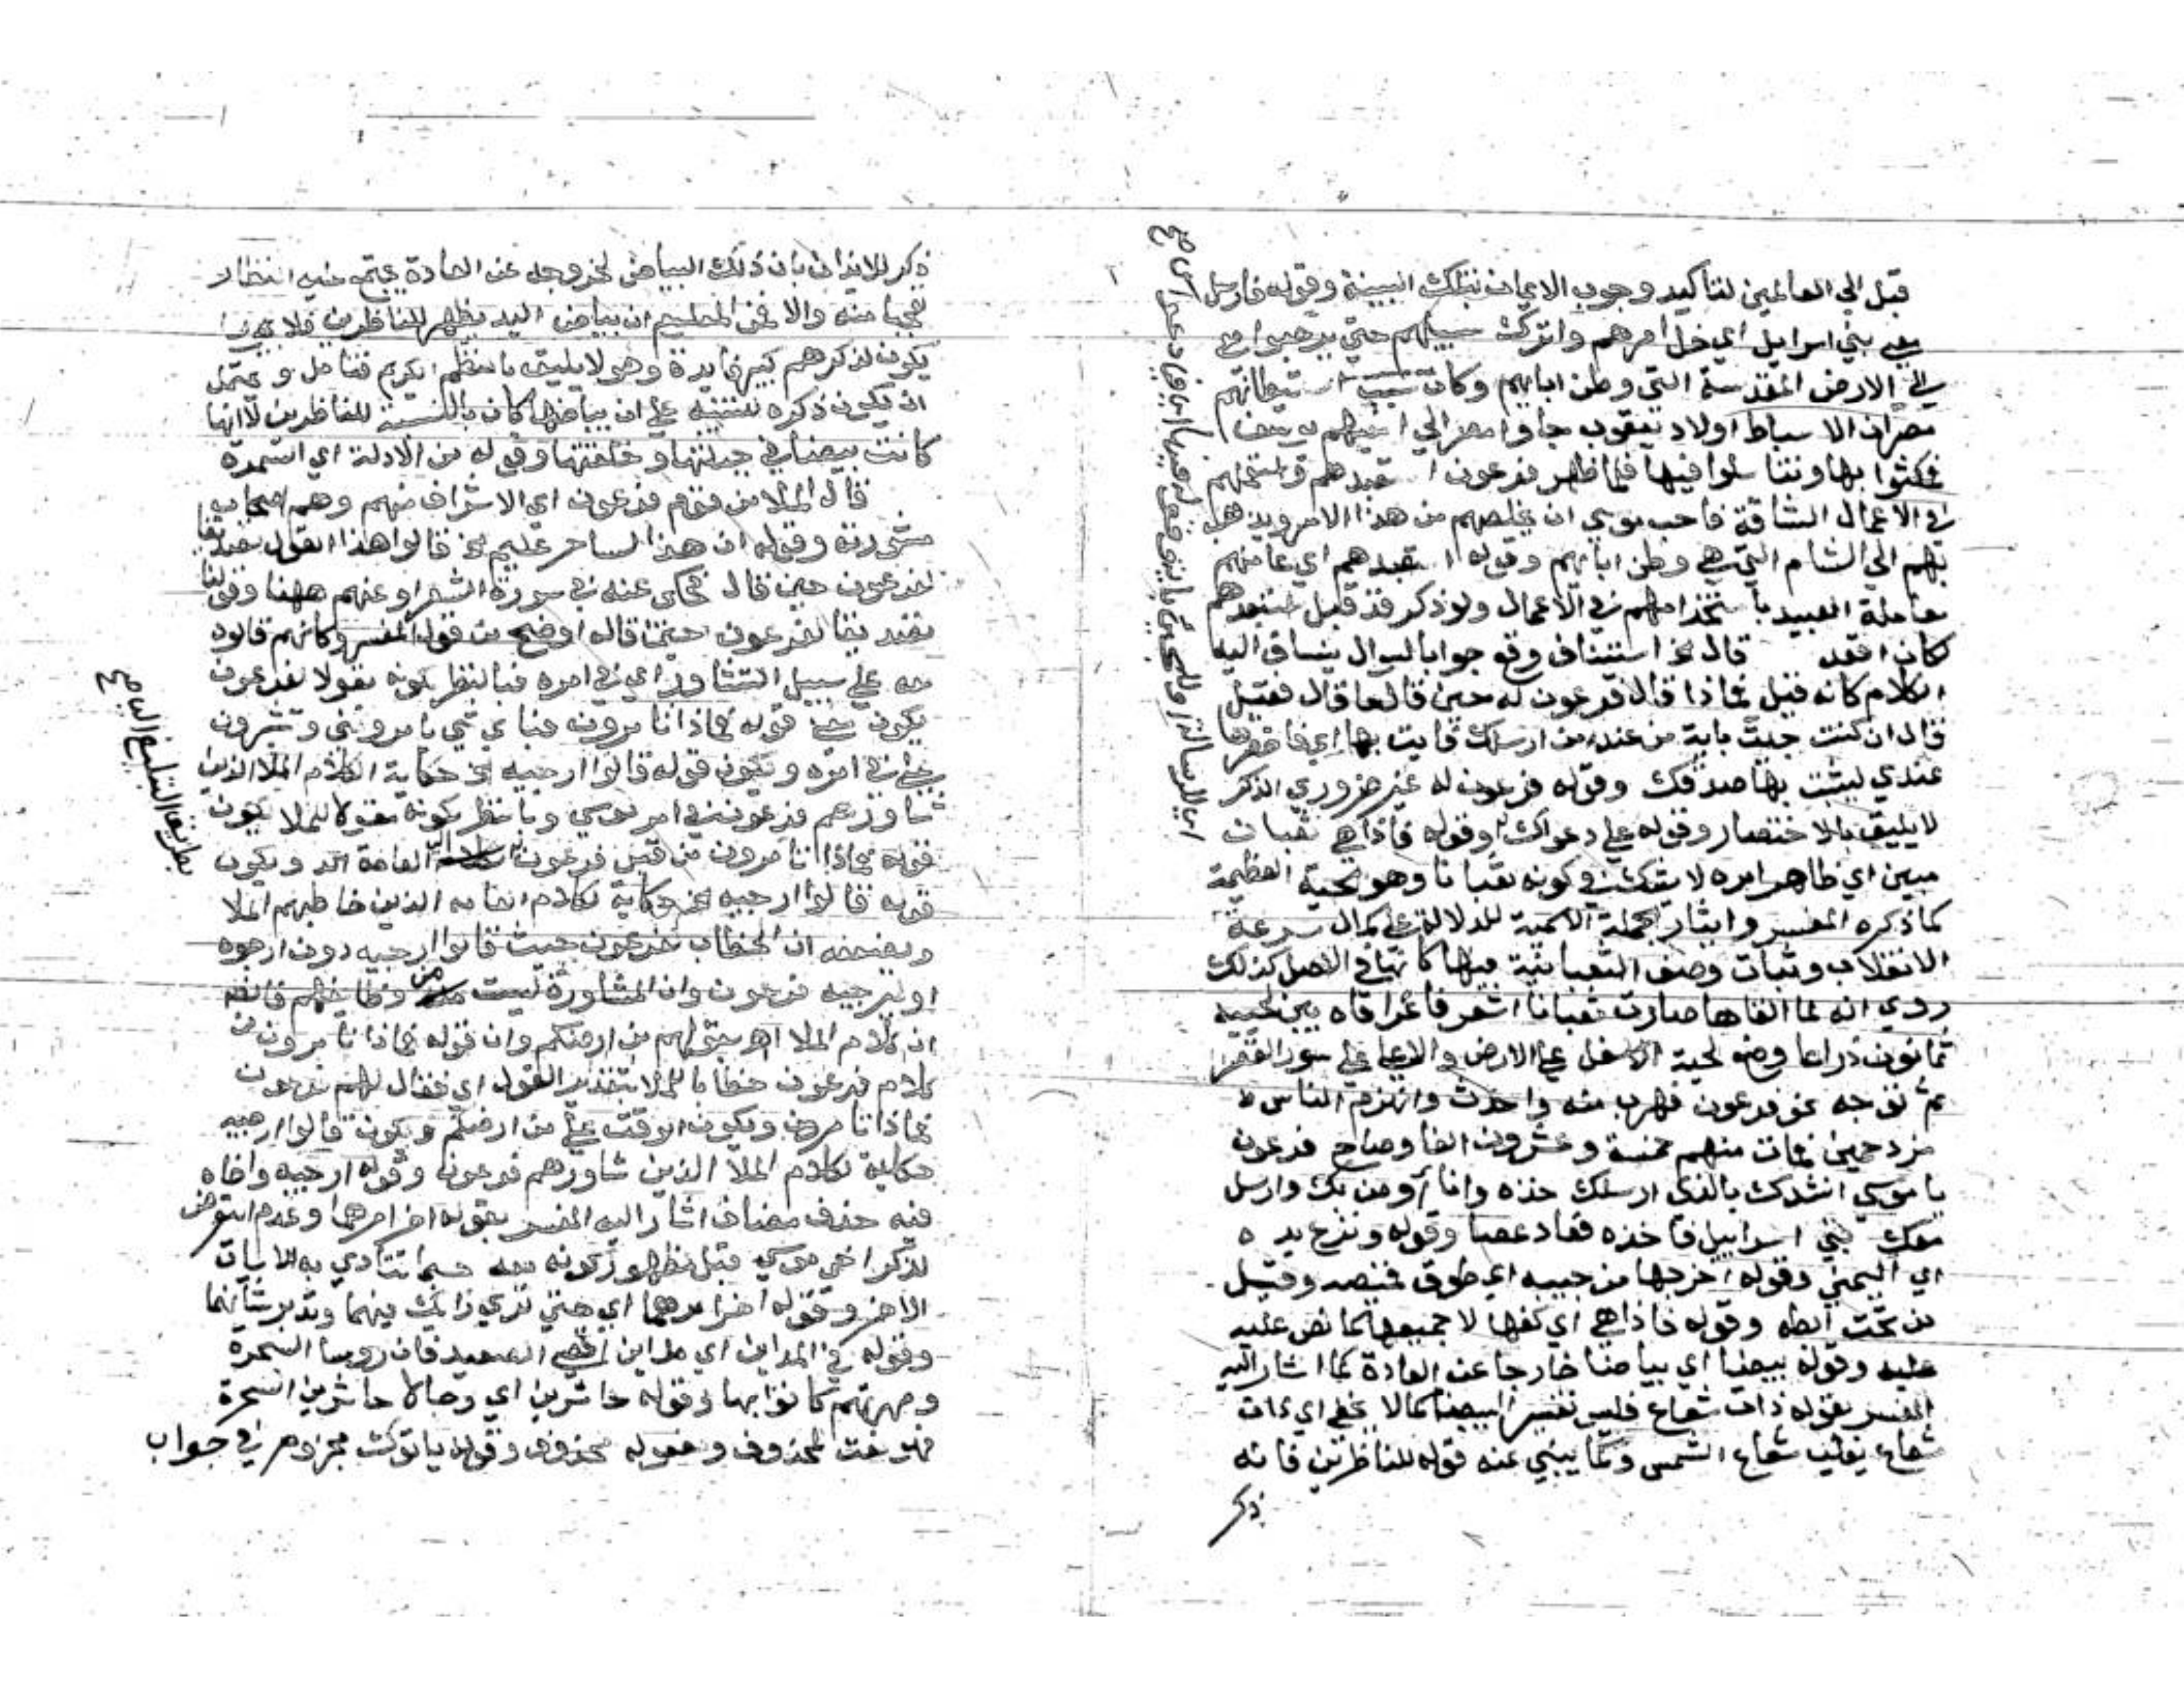 قبل الي العالمين لتاكيد وجوب الايمان بتلك البينة وقوله فارسل
معي بني اسرايل اي خل امرهم واترك سبيلهم حتي يذهبوا معي
الي الارض المقدسة التي وطن ابايهم وكان سبب استيطانهم
مصر ان الاسباط اولاد يعقوب جاوا مصر الي اخيهم يوسف
فمكثوا بها وتناسلوا فيها فلما ظهر فرعون استعبدهم واستعملهم
في الاعمال الشاقة فاحب موسي ان يخلصهم من هذا الامر ويذهب
بهم الي الشام التي هي وطن ابايهم وقوله استعبدهم اي عاملهم
معاملة العبيد باستخدامهم في الاعمال ولو ذكر قد قبل استعبدهم
لكان اقعد قال الخ استيناف وقع جوابا لسوال ينساق اليه
الكلام كانه قيل فماذا قال فرعون له حين قال ما قال فقيل
قال ان كنت جيت باية من عند من ارسلك فايت بها اي فاحضرها
عندي ليثبت بها صدقك وقوله فرعون له غير ضروري الذكر
لا يليق بالاختصار وقوله علي دعواك وقوله فاذا هي ثعبان
مبين اي ظاهر امره لا يشك في كونه ثعبانا وهو الحية العظيمة
كما ذكره المفسر وايثار الجملة الاسمية للدلالة علي كمال سرعة
الانقلاب وثبات وصف الثعبانية فيها كانها في الاصل كذلك
روي انه لما القاها صارت ثعبانا اشعر فاغرا فاه بين لحييه
ثمانون ذراعا وضع لحيه الاسفل علي الارض والاعلي علي سور القصر
ثم توجه نحو فرعون فهرب منه واحدث وانهزم الناس
مزدحمين فمات منهم خمسة وعشرون الفا وصاح فرعون
يا موسي انشدك بالذي ارسلك خذه وانا اومن بك وارسل
معك بني اسراييل فاخذه فعاد عصا وقوله ونزع يده
اي اليمني وقوله اخرجها من جيبه اي طوق قميصه وقيل
من تحت ابطه وقوله فاذا هي اي كفها لا جميعها كما نص عليه
عليه وقوله بيضا اي بياضا خارجا عن العادة كما اشار اليه
المفسر بقوله ذات شعاع فليس تفسير البيضا كما لا يخفي اي ذات
شعاع يغلب شعاع الشمس وكما ينبي عنه قوله للناظرين فانه
ذكر
ذكر للايذان بان ذلك البياض لخروجه عن العادة يجتمع عليه النظار
تعجبا منه والا فمن المعلوم ان بياض اليد يظهر للناظرين فلا
يكون لذكرهم كبير فايدة وهو لا يليق بالنظم الكريم فتامل ويحتمل
ان يكون ذكره للتنبيه علي ان بياضها كان بالنسبة للناظرين لا انها
كانت بيضا في جبلتها وخلقتها وقوله من الادلة اي السمرة
قال الملا من قوم فرعون اي الاشراف منهم وهم اصحاب
مشورته وقوله ان هذا لساحر عليم الخ قالوا هذا القول تصديقا
لفرعون حين قال فحكي عنه في سورة الشعرا وعنهم ههنا وقولنا
تصديقا لفرعون حيثما قاله اوضح من قول المفسر وكانهم قالوه
معه علي سبيل التشاور اي في امره فبالنظر لكونه مقولا لفرعون
يكون قوله فماذا تامرون فباي شي تامرونني وتشيرون
علي في امره ويكون قوله قالوا ارجيه الخ حكاية لكلام الملا الذين
شاورهم فرعون في امر موسي وبالنظر لكونه مقولا للملا يكون
قوله فماذا تامرون من قبل فرعون العامة الخ ويكون
قوله قالوا ارجيه الخ حكاية لكلام العامة الذين خاطبهم الملا
ويضعفه ان الخطاب لفرعون حيث قالوا ارجيه دون ارجوه
او ليرجيه فرعون وان المشاورة ليست من وظايفهم فاتضح
ان كلام الملا اخر بقولهم من ارضكم وان قوله فماذا تامرون من
كلام فرعون خطابا للملا بتقدير القول اي فقال لهم فرعون
فماذا تامرون ويكون الوقف علي من ارضكم ويكون قالوا ارجيه
حكاية لكلام الملا الذين شاورهم فرعون وقوله ارجيه واخاه
فيه حذف مضاف اشار اليه المفسر بقوله اخر امرهما وعدم التعرض
لذكر اخي موسي قبل لظهور كونه معه حسبما تنادي به الايات
الاخر وقوله اخر امرهما اي حتي تري رايك فيهما وتدبر شانهما
وقوله في المداين اي مداين اقصي الصعيد فان روسا السحرة
ومهرتهم كانوا بها وقوله حاشرين اي رجالا حاشرين السحرة
فهو نعت لمحذوف ومفعوله محذوف وقوله ياتوك مجزوم في جواب